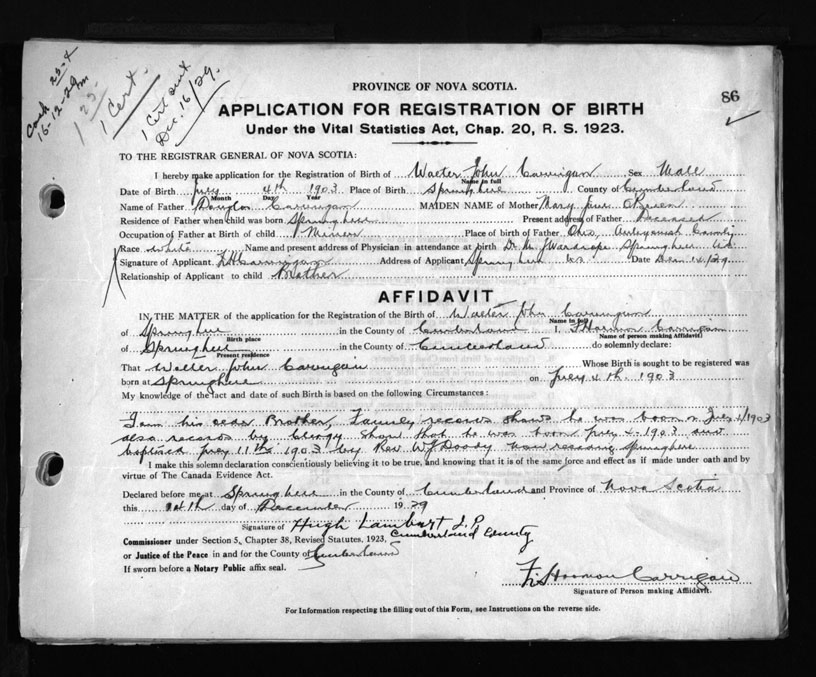 Cash 25-x
16-12-29
1 25.
1 Cert.
1 Cert out
Dec. 16/29.
86
PROVINCE OF NOVA SCOTIA.
APPLICATION FOR REGISTRATION OF BIRTH
Under the Vital Statistics Act, Chap. 20, R. S. 1923.
TO THE REGISTRAR GENERAL OF NOVA SCOTIA:
I hereby make application for the Registration of Birth of Walter John Carrigan Sex Male
Name in full
Date of Birth July 4th 1903 Place of Birth Springhill County of Cumberland
Month Day Year
Name of Father Douglas Carrigan MAIDEN NAME of Mother Mary Jane O'Brien
Residence of Father when child was born Springhill Present address of Father Deceased
Occupation of Father at Birth of child Miner Place of birth of Father Ohio, Antigonish County
Race white Name and present address of Physician in attendance at birth Dr. Wardrope Springhill NS
Signature of Applicant Carrigan Address of Applicant Springhill NS Date Dec 14/29
Relationship of Applicant to child Brother
AFFIDAVIT
IN THE MATTER of the application for the Registration of the Birth of Walter John Carrigan
Name in full
of Springhill in the County of Cumberland I, Harmon Carrigan
Birth place Name of person making Affidavit
of Springhill in the County of Cumberland do solemnly declare:
Present residence
That Walter John Carrigan Whose Birth is sought to be registered was
born at Springhill on July 4th. 1903
My knowledge of the fact and date of such Birth is based on the following Circumstances:
I am his elder Brother, Family records shows he was born on July 4/1903
also records by Clergy show that he was born July 4-1903 and
baptized July 11th 1903 by Rev W J Doody now residing Springhill
I make this solemn declaration conscientiously believing it to be true, and knowing that it is of the same force and effect as if made under oath and by
virtue of The Canada Evidence Act.
Declared before me at Springhill in the County of Cumberland and Province of Nova Scotia
this day of December 1929
Signature of Hugh Lambert J.P.
Commissioner under Section 5, Chapter 38, Revised Statutes, 1923, Cumberland County
or Justice of the Peace in and for the County of Cumberland
If sworn before a Notary Public affix seal.
Harmon Carrigan
Signature of Person making Affidavit.
For Information respecting the filling out of this Form, see Instructions on the reverse side.